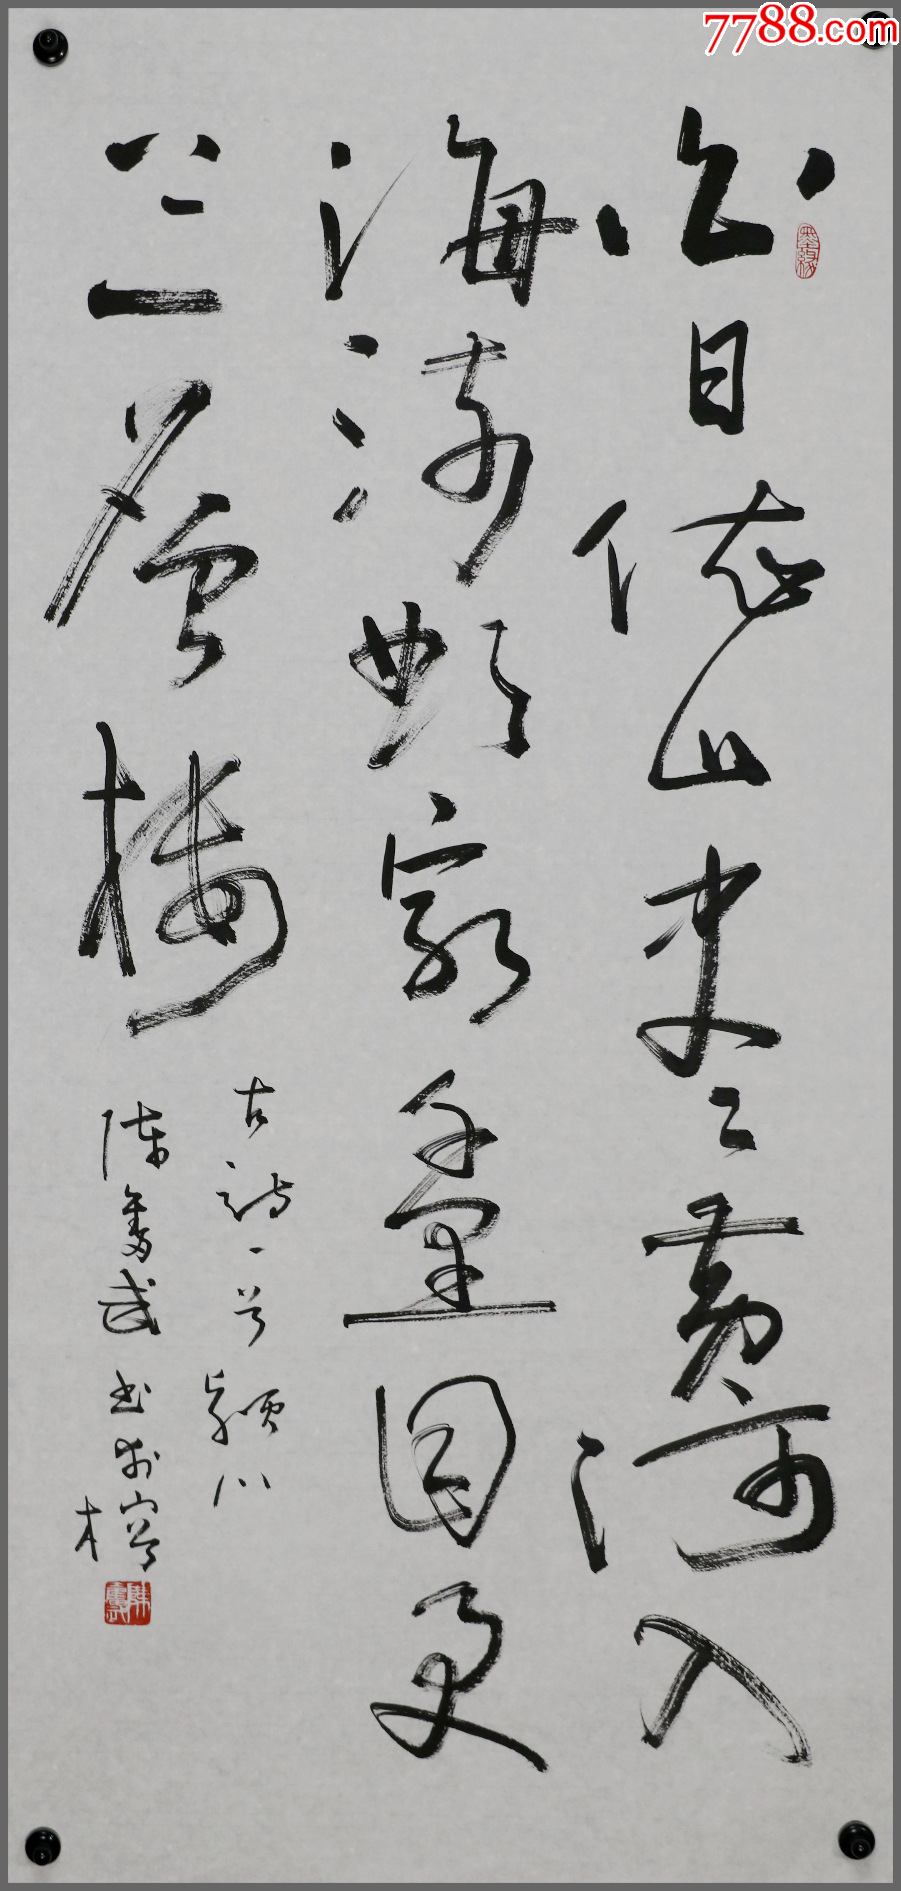 7788.com
白日依山尽黄河入
海流欲穷千里目更
上一层楼
古诗一首颍川
陈奋武书於榕